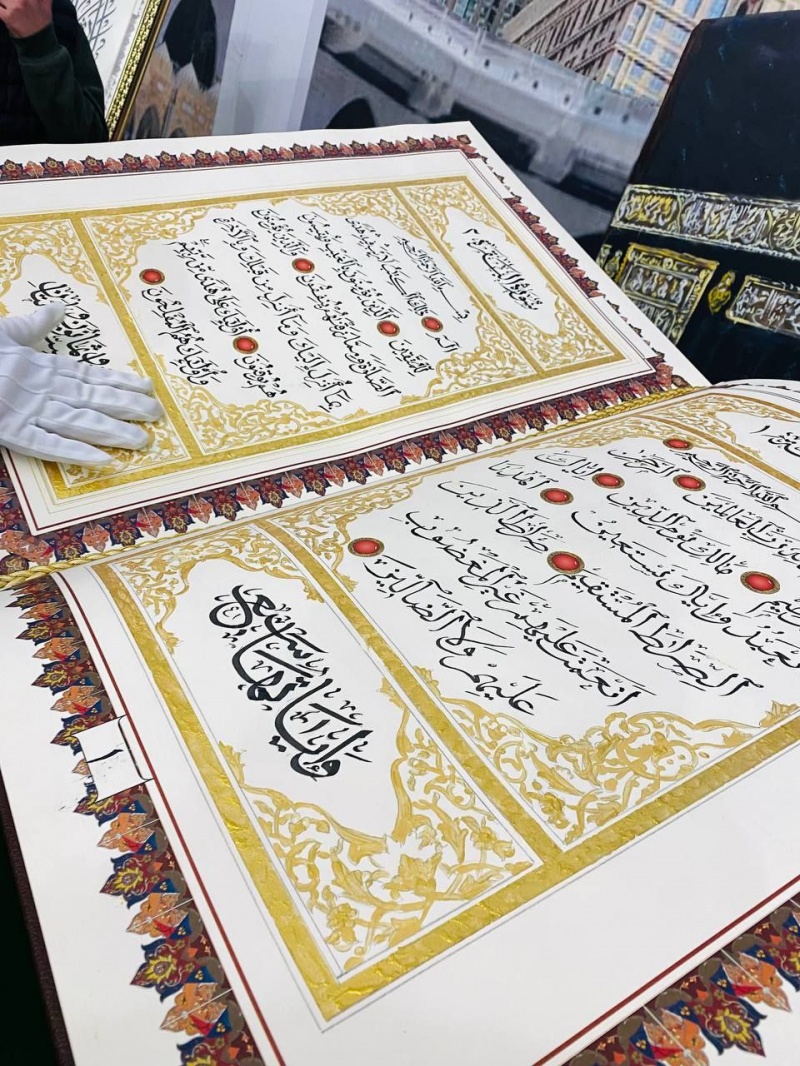 سورة البقرة ٢
بسم الله الرحمن الرحيم
الم ذلك الكتب لا ريب فيه هدى
للمتقين الذين يؤمنون بالغيب ويقيمون
الصلاة ومما رزقنهم ينفقون والذين يؤمنون
بما أنزل إليك وما أنزل من قبلك وبالآخرة
هم يوقنون أولئك على هدى من ربهم
وأولئك هم المفلحون
١
بسم الله الرحمن الرحيم
رب العالمين الرحمن
مالك يوم الدين اياك
نعبد واياك نستعين اهدنا
الصراط المستقيم صراط الذين
انعمت عليهم غير المغضوب
عليهم ولا الضالين
وآياتها سبع
١